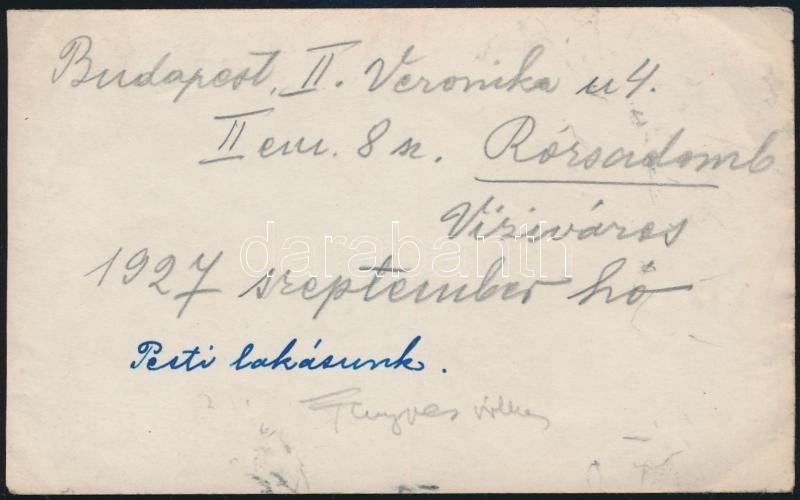 Budapest, II. Veronika u 4.
II em. 8 sz. Rózsadomb
Viziváros
darabanth
1927 szeptember hó
Pesti lakásunk.